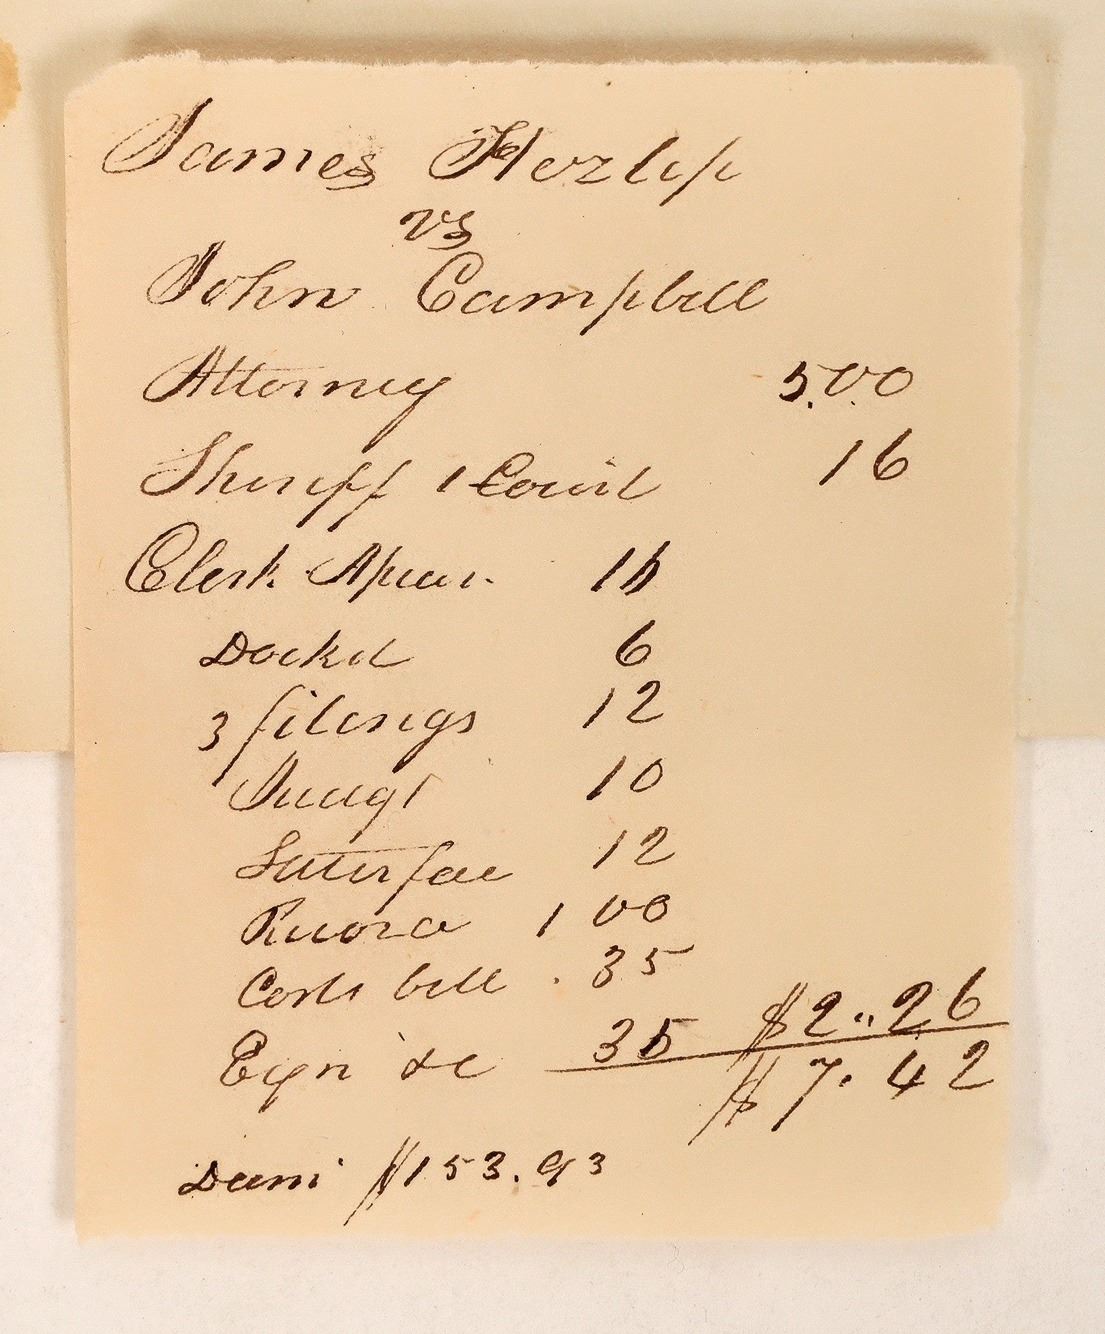 James Hezlip
vs
John Campbell
Attorney 5.00
Sheriff 1 Court 16
Clerk Apear. 16
Dockd 6
3 filings 12
Judgt 10
Satisfac 12
Record 1 00
Costs bill . 35
Exn &c 35 $2.. 26
$ 7. 42
Dam $153.93